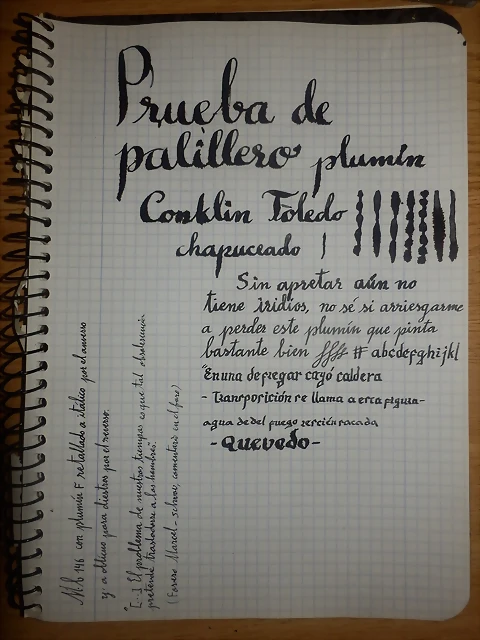 Prueba de
palillero plumín
Conklin Toledo
chapuceado
Sin apretar aún no
tiene iridios, no sé si arriesgarme
a perder este plumín que pinta
bastante bien ffff # abcdefghijkl
"En una de fregar cayó caldera
- Transposición se llama a esta figura -
agua de del fuego
- Quevedo -
Mb 146 con plumín F retallado a itálico por el anverso
y a oblicuo para diestros por el reverso.
"[...] El problema de nuestros tiempos es que tal
pretende trasladarse a los hombres".
(Forero Marcel - , comentario en el foro)